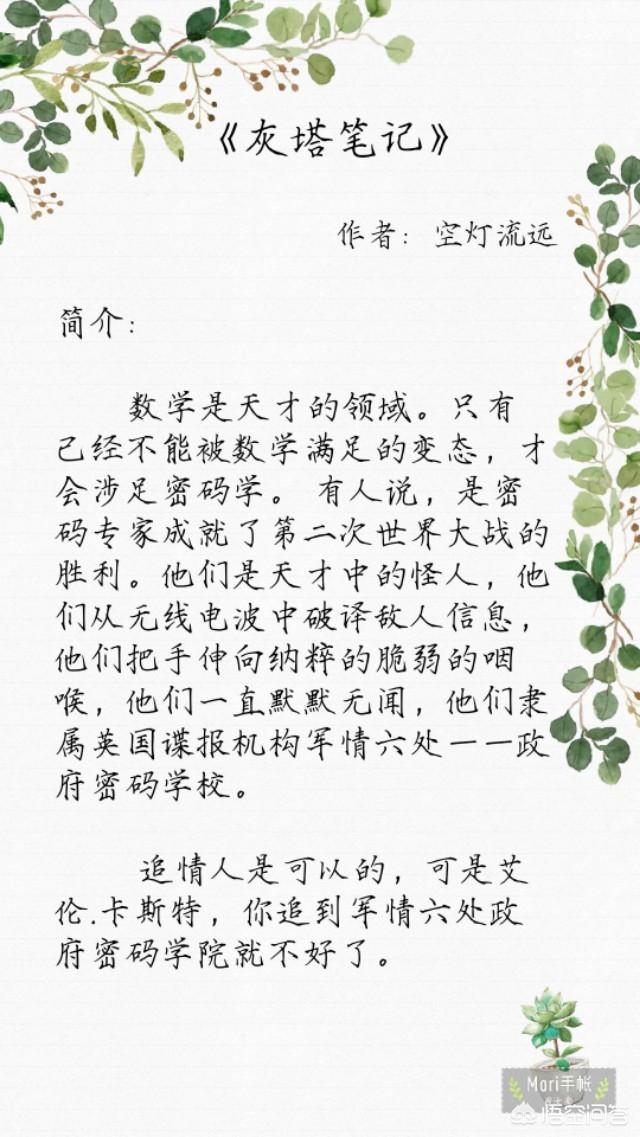 《灰塔笔记》
作者：空灯流远
简介：
数学是天才的领域。只有
已经不能被数学满足的变态，才
会涉足密码学。 有人说，是密
码专家成就了第二次世界大战的
胜利。他们是天才中的怪人，他
们从无线电波中破译敌人信息，
他们把手伸向纳粹的脆弱的咽
喉，他们一直默默无闻，他们隶
属英国谍报机构军情六处——政
府密码学校。
追情人是可以的，可是艾
伦.卡斯特，你追到军情六处政
府密码学院就不好了。
Mori手帐
悟空问答